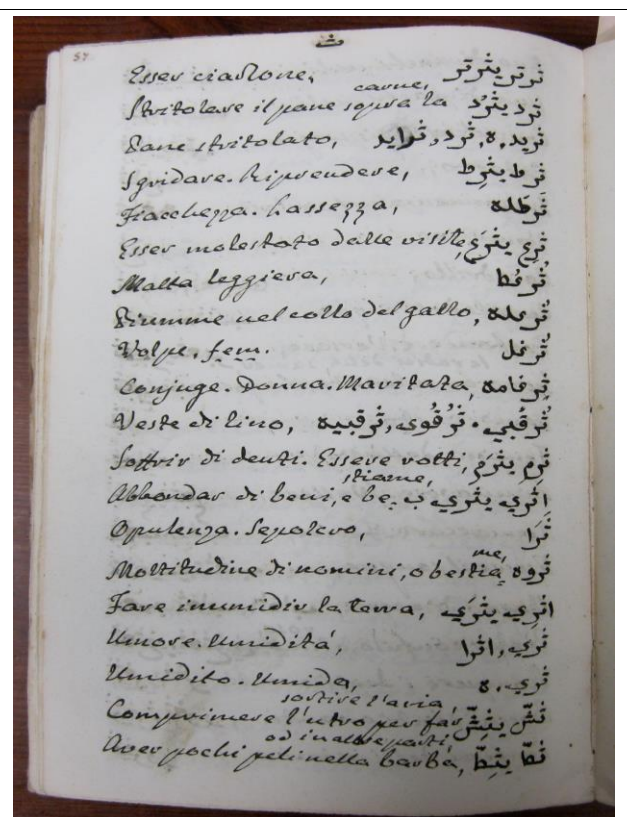 ث
57
Esser ciarlone, ثرتر يثرتر
Stritolare il pane sopra la carne, ثرد يثرُد
Pane stritolato, ثريد, ه, ثرد, ثرايد
Sgridare. Riprendere, ثرط يثرِط
Fiacchezza. Lassezza, ثَرطله
Esser molestato dalle visite, ثرِع يثرَع
Malta leggiera, ثُرعُطا
Piumme nel collo del gallo, ثرعله
Volpe. fem. ثُرعل
Conjuge. Donna. Maritata, ثِرغامه
Veste di lino, ثُرقُبي. ثُرقُوى, ثُرقبيه
Soffrir di denti. Essere rotti, ثرِم يثرَم
Abbondar di beni, e bestiame, اثري يثري ب
Opulenza. Sepolcro, ثَرَا
Moltitudine di nomini, o bestiame, ثروه
Fare inumidir la terra, اثرِي يثرَي
Umore. Umiditá, ثري, اثرا
Umidito. Umida, ثري, ه
Comprimere l'utro per far sortire l'aria, ثشّ يثِشّ
Aver pochi peli nella barba, od in altre parti, ثطّا يثِطّ